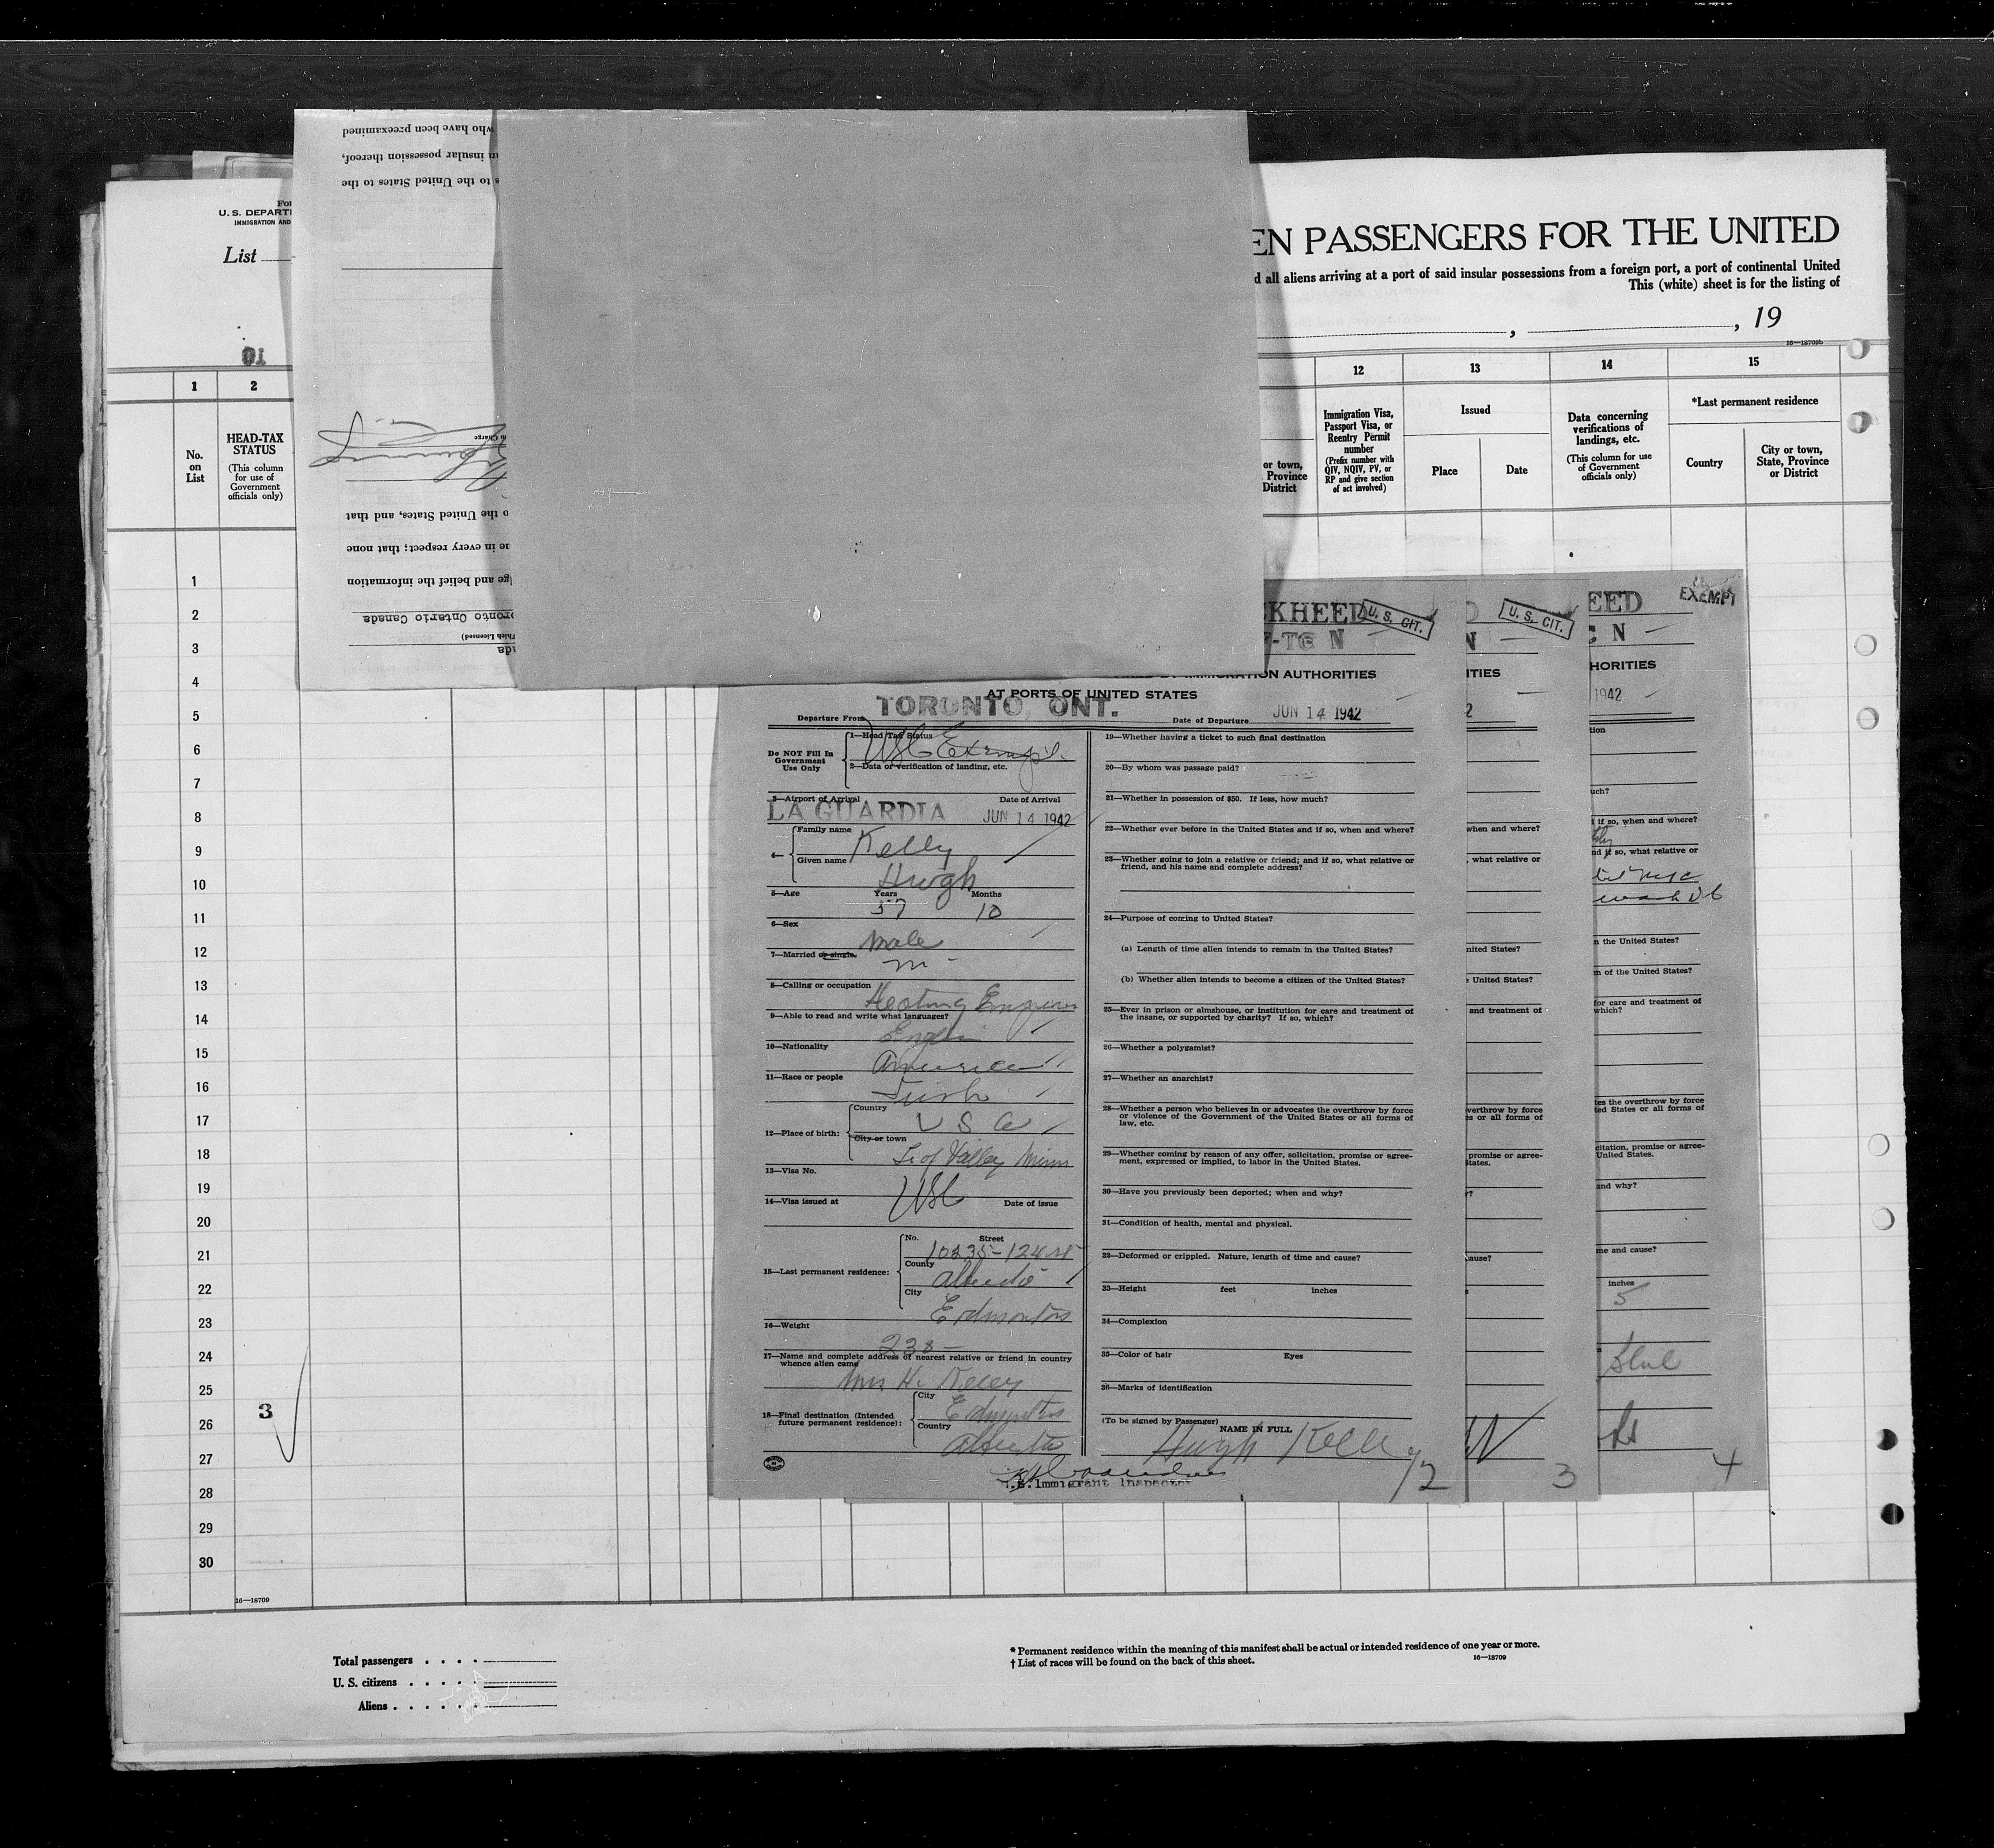 who have been preexamined
insular possession thereof,
s to the United States to the
U. S. DEPART
IMMIGRATION AND
List
01
EN PASSENGERS FOR THE UNITED
d all aliens arriving at a port of said insular possessions from a foreign port, a port of continental United
This (white) sheet is for the listing of
, , 19
16—18709b
1 2 12 13 14 15
No. on List
HEAD-TAX STATUS
(This column for use of Government officials only)
or town, Province District
Immigration Visa, Passport Visa, or Reentry Permit number
(Prefix number with QIV, NQIV, PV, or RP and give section of act involved)
Issued
Place Date
Data concerning verifications of landings, etc.
(This column for use of Government officials only)
*Last permanent residence
Country
City or town, State, Province or District
in Charge
o the United States, and that
ue in every respect; that none
ge and belief the information
oronto Ontario Canada
hich Licensed)
ada
1
2
3
4
5
6
7
8
9
10
11
12
13
14
15
16
17
18
19
20
21
22
23
24
25
26
27
28
29
30
3
16—18709
KHEED
U. S. CIT.
-TG N
IMMIGRATION AUTHORITIES
AT PORTS OF UNITED STATES
Departure From TORONTO, ONT.
Date of Departure JUN 14 1942
Do NOT Fill In Government Use Only
1—Head Tax Status USC Exempt
2—Data of verification of landing, etc.
3—Airport of Arrival Date of Arrival
LA GUARDIA JUN 14 1942
4— Family name Kelly
Given name Hugh
5—Age Years Months
57 10
6—Sex Male
7—Married or single. M
8—Calling or occupation Heating Engineer
9—Able to read and write what languages?
English
10—Nationality American
11—Race or people Irish
12—Place of birth: Country U S A
City or town Valley Minn
13—Visa No.
14—Visa issued at USC Date of issue
15—Last permanent residence: No. Street
10235-124 St
County Alberta
City Edmonton
16—Weight 238
17—Name and complete address of nearest relative or friend in country whence alien came
Mrs H. Kelly
18—Final destination (Intended future permanent residence): City Edmonton
Country Alberta
19—Whether having a ticket to such final destination
20—By whom was passage paid?
21—Whether in possession of $50. If less, how much?
22—Whether ever before in the United States and if so, when and where?
23—Whether going to join a relative or friend; and if so, what relative or friend, and his name and complete address?
24—Purpose of coming to United States?
(a) Length of time alien intends to remain in the United States?
(b) Whether alien intends to become a citizen of the United States?
25—Ever in prison or almshouse, or institution for care and treatment of the insane, or supported by charity? If so, which?
26—Whether a polygamist?
27—Whether an anarchist?
28—Whether a person who believes in or advocates the overthrow by force or violence of the Government of the United States or all forms of law, etc.
29—Whether coming by reason of any offer, solicitation, promise or agreement, expressed or implied, to labor in the United States.
30—Have you previously been deported; when and why?
31—Condition of health, mental and physical.
32—Deformed or crippled. Nature, length of time and cause?
33—Height feet inches
34—Complexion
35—Color of hair Eyes
36—Marks of identification
(To be signed by Passenger)
NAME IN FULL
Hugh Kelly
U.S. Immigrant Inspector
2
U. S. CIT.
N
ITIES
2
when and where?
, what relative or
nited States?
United States?
and treatment of
verthrow by force
s or all forms of
promise or agree-
States.
y?
ause?
3
EED
EXEMPT
N
HORITIES
1942
tion
uch?
if so, when and where?
nd if so, what relative or
n the United States?
n of the United States?
for care and treatment of
which?
tes the overthrow by force
ted States or all forms of
citation, promise or agree-
United States.
and why?
me and cause?
inches
5
Blue
4
Total passengers
U. S. citizens
Aliens
* Permanent residence within the meaning of this manifest shall be actual or intended residence of one year or more.
† List of races will be found on the back of this sheet.
16—18709